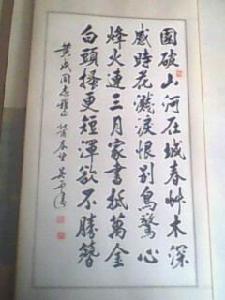 國破山河在城春草木深
感時花濺淚恨别鳥驚心
烽火連三月家書抵萬金
白頭搔更短渾欲不勝簪